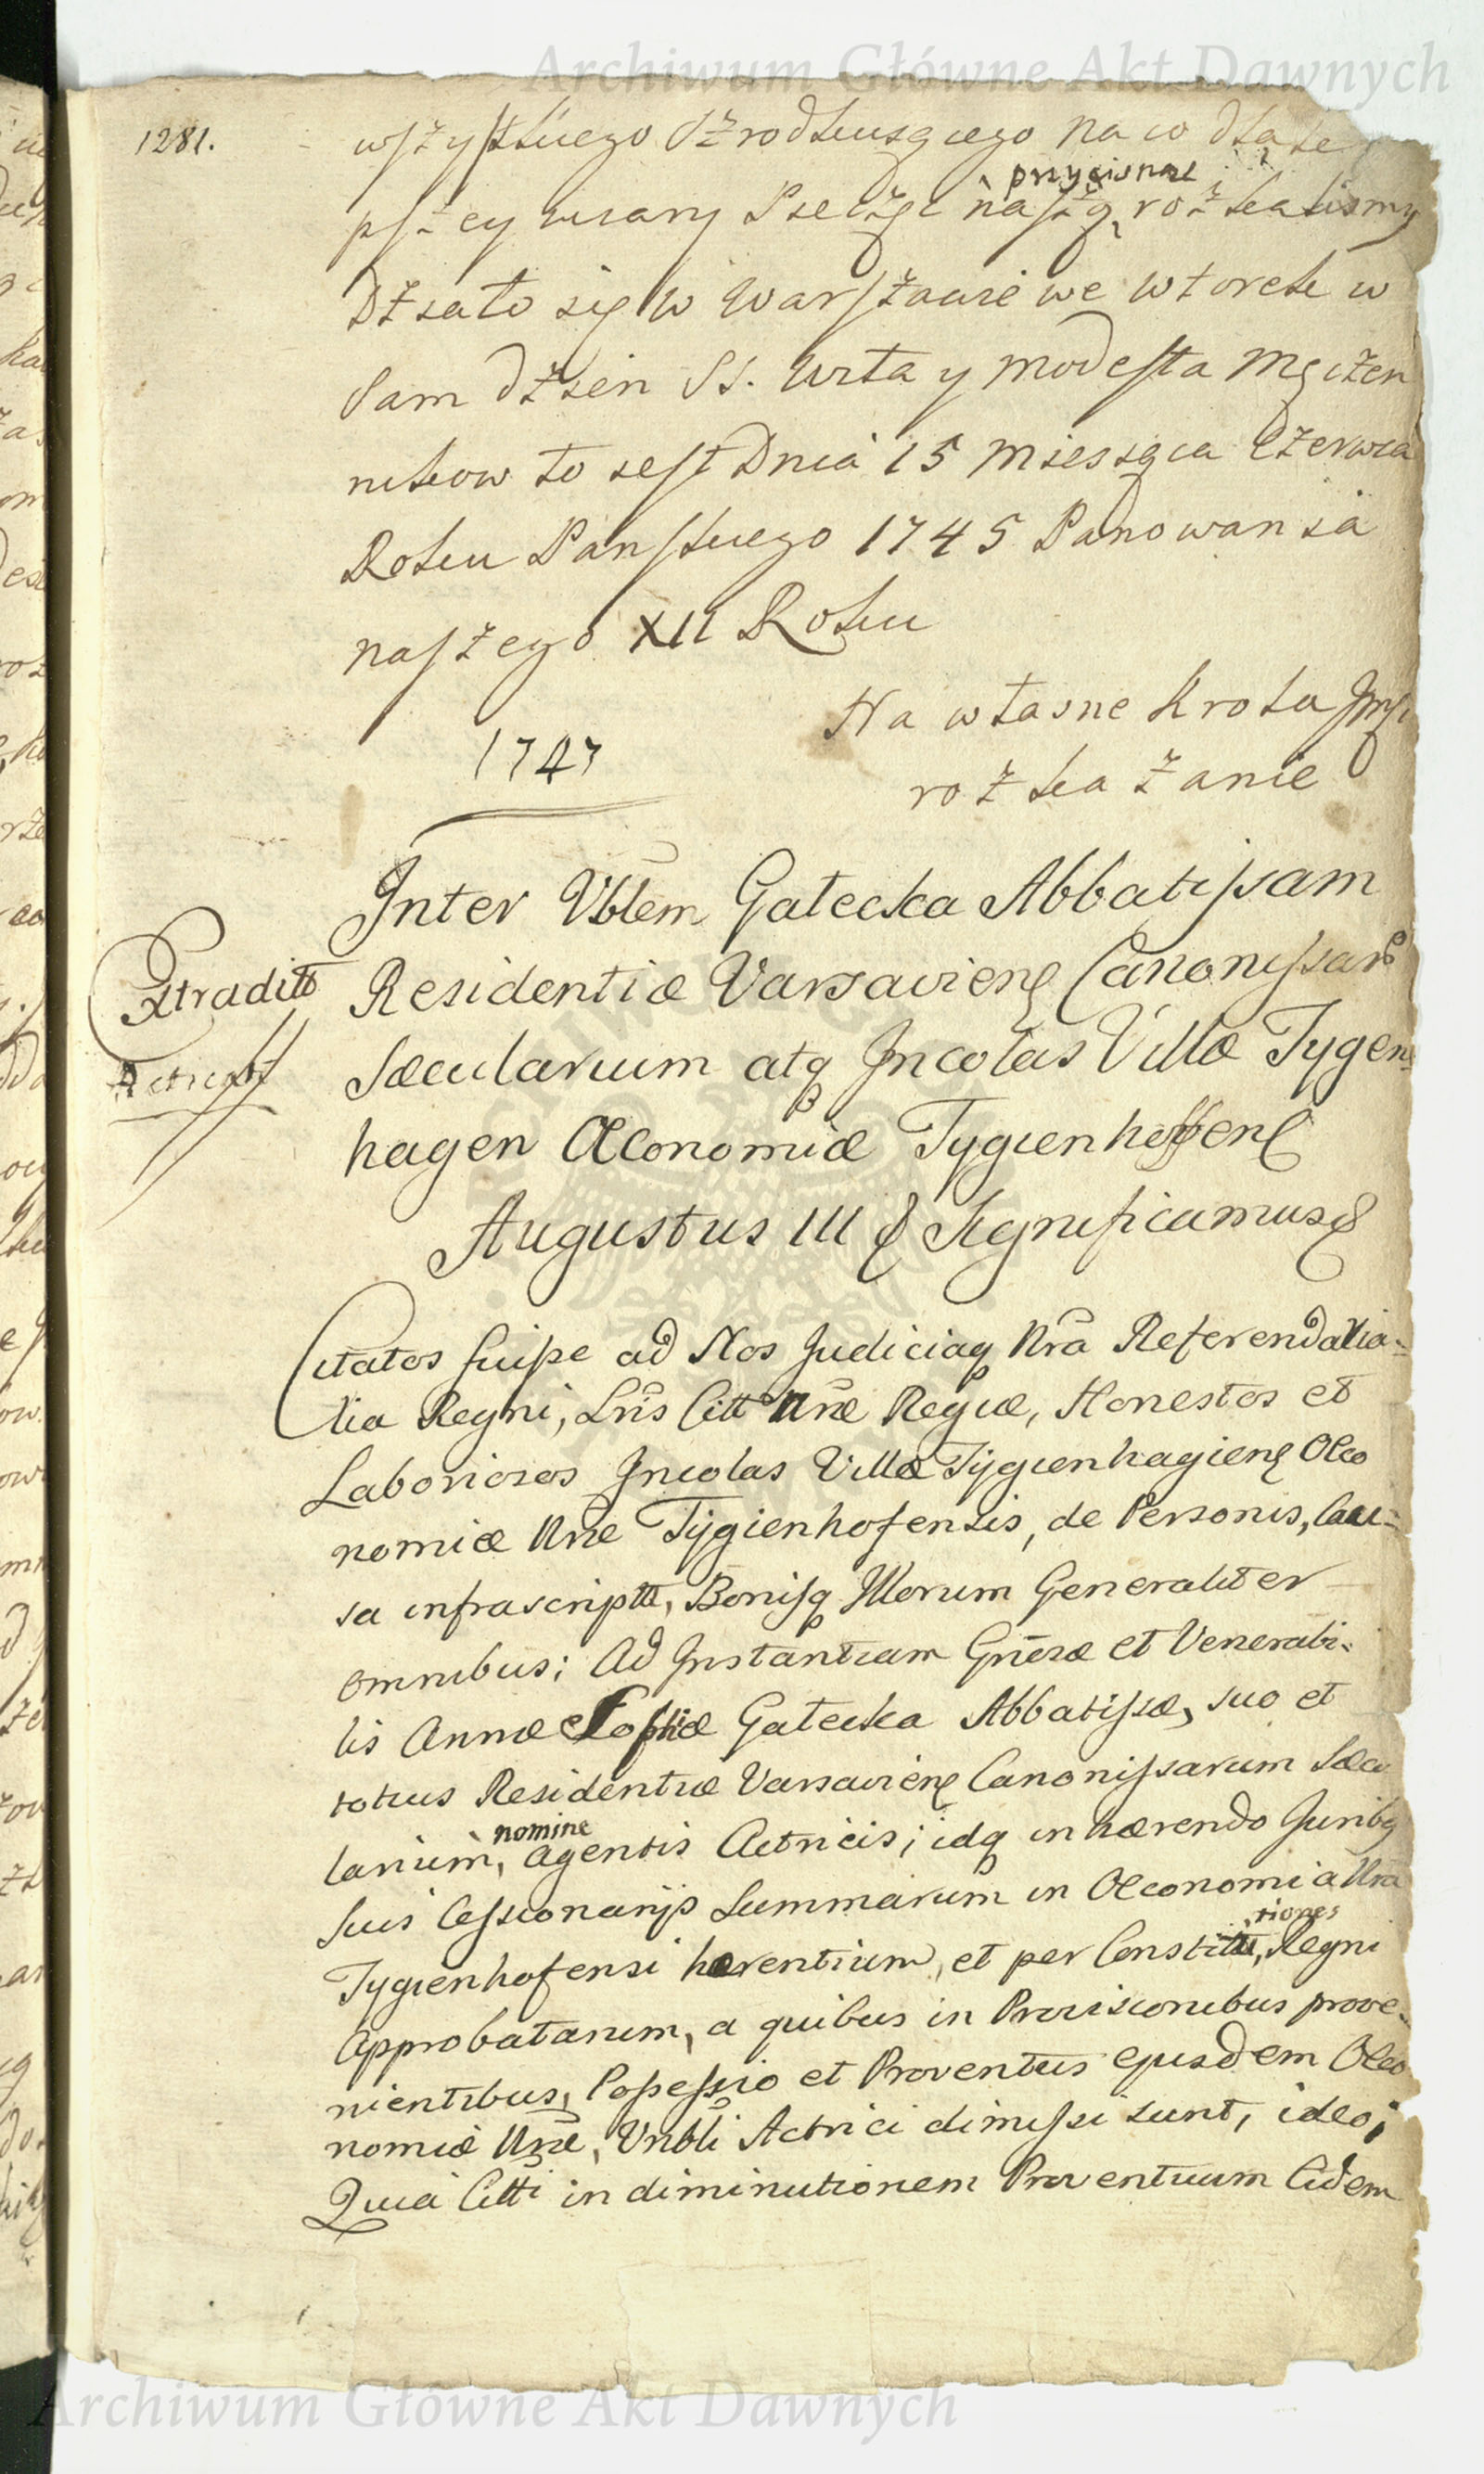 Archiwum Główne Akt Dawnych
1281.
wszystkiego na
przycisnąć
pszey wiary Pieczęć naszą rozkalismy
Działo się w Warszawie we wtorek w
sam dzień SS. Wita y Modesta Męczen
nikow to iest Dnia 15 Miesiąca Czerwca
Roku Panskiego 1745 Panowania
naszego XII Roku
Na własne Krola Jmsci
rozkazanie
1747
Inter Vblem Gałecka Abbatissam
Extradittt
Residentiæ Varsaviens Canonissar
Sæcularium atq Incolas Villæ Tygen
hagen Œconomiæ Tygienhoffens
Augustus III & Significamus &
Citatos fuisse ad Nos Judiciaq Nra Referendaria-
lia Regni, Lris Citt Nræ Regiæ, Honestos et
Laboriosos Incolas Villæ Tÿgienhagiens Oeco
nomiæ Nræ Tÿgienhofensis, de Personis, Cau-
sa infrascriptt, Bonisq Illorum Generaliter
omnibus; Ad Instantiam Gnsæ et Venerabi-
lis Annæ Sophiæ Gałecka Abbatissæ, suo et
totius Residentiæ Varsaviens Canonissarum Sæcu
nomine
larium, agentis Actricis; idq inhærendo Juribq
suis Cessionarijs Summarum in Oeconomia Nra
tiones
Tygienhofensi hærentium, et per Constitu, Regni
Approbatarum, a quibus in Provisionibus prove-
nientibus, Possessio et Proventus ejusdem Oeco
nomiæ Nræ, Vnbli Actrici dimissi sunt, ideo;
Quia Citti in diminutionem Proventuum Eidem
Archiwum Główne Akt Dawnych